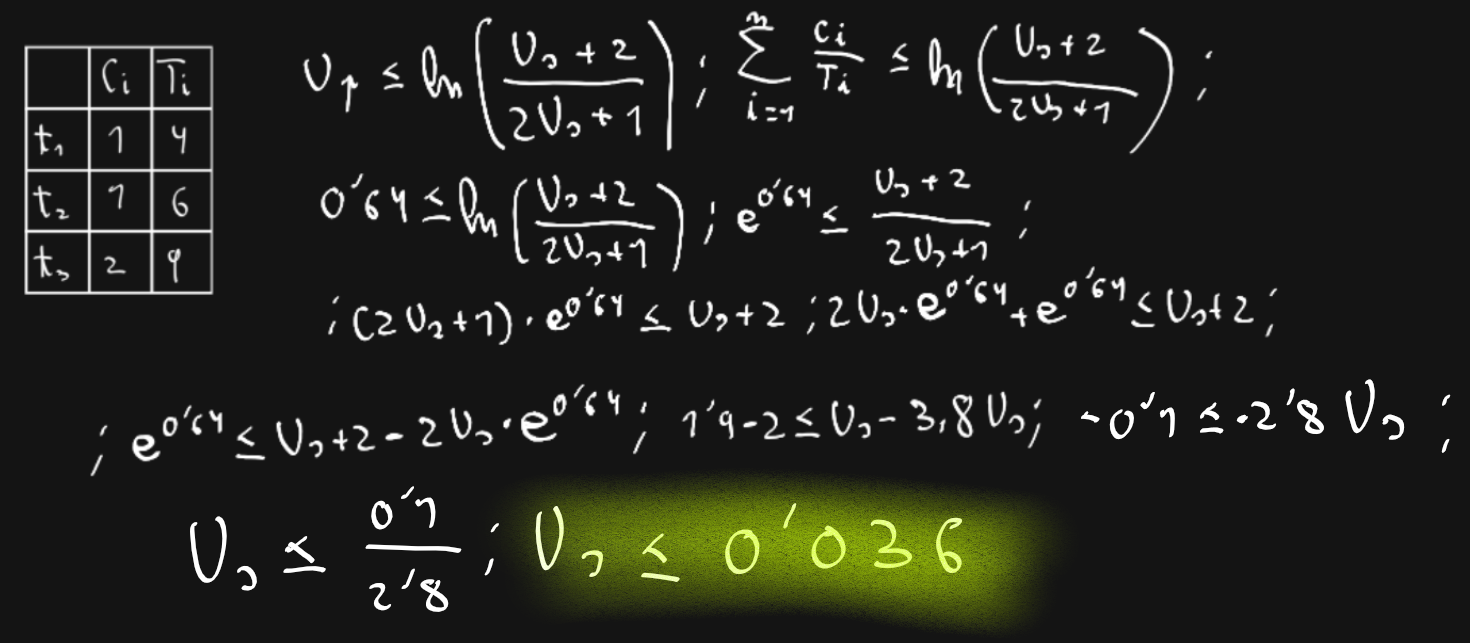 Ci Ti
t₁ 1 4
t₂ 1 6
t₃ 2 9
Up ≤ ln((Us + 2)/(2Us + 1)) ; ∑_{i=1}^{n} Ci/Ti ≤ ln((Us + 2)/(2Us + 1)) ;
0'64 ≤ ln((Us + 2)/(2Us + 1)) ; e^{0'64} ≤ (Us + 2)/(2Us + 1) ;
; (2Us + 1) · e^{0'64} ≤ Us + 2 ; 2Us · e^{0'64} + e^{0'64} ≤ Us + 2 ;
; e^{0'64} ≤ Us + 2 - 2Us · e^{0'64} ; 1'9 - 2 ≤ Us - 3,8Us ; -0'1 ≤ -2'8 Us ;
Us ≤ 0'1/2'8 ; Us ≤ 0'036